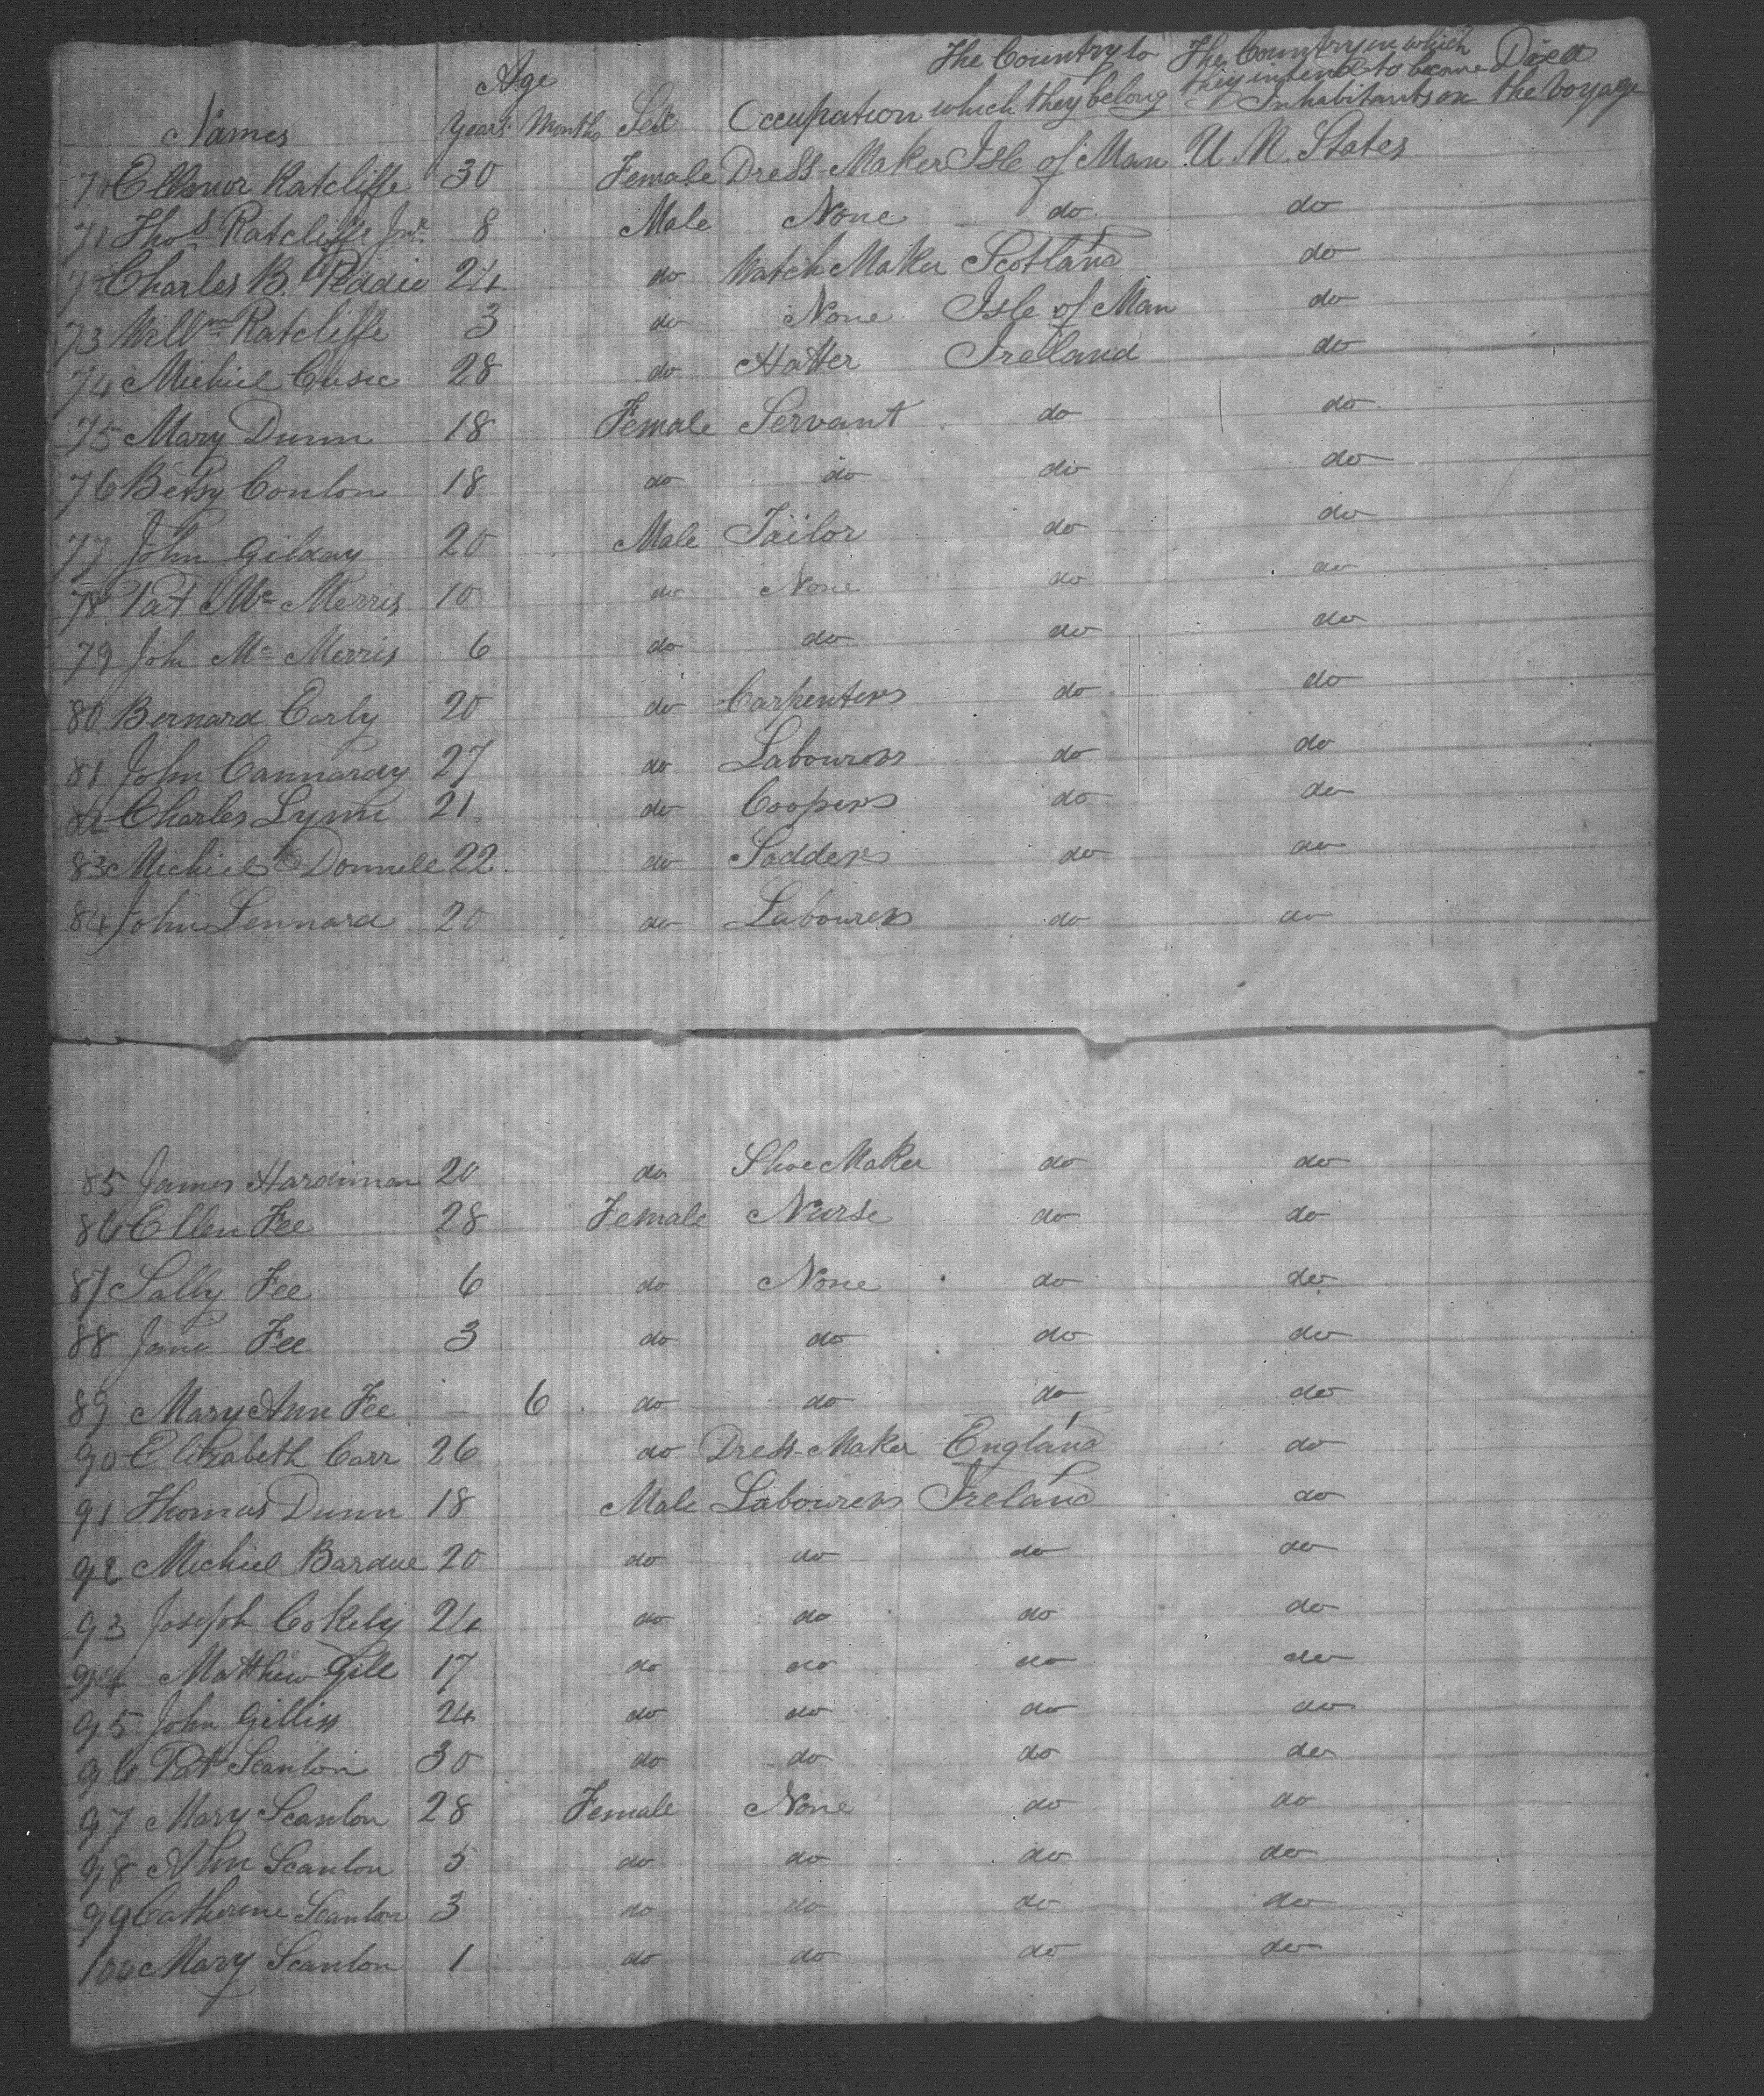 Names Age Years Months Sex Occupation The Country to which they belong The Country in which they intend to become Inhabitants Died on the Voyage
70 Ellenor Ratcliffe 30 Female Dress-Maker Isle of Man U. N. States
71 Thos Ratcliffe Junr 8 Male None do do
72 Charles B. Peddie 24 do Watch Maker Scotland do
73 Willm Ratcliffe 3 do None Isle of Man do
74 Michiel Cusic 28 do Hatter Ireland do
75 Mary Dunn 18 Female Servant do do
76 Betsy Conlon 18 do do do do
77 John Gilday 20 Male Tailor do do
78 Pat Mc Merris 10 do None do do
79 John Mc Merris 6 do do do do
80 Bernard Early 20 do Carpenters do do
81 John Cannardy 27 do Labourers do do
82 Charles Lynn 21 do Coopers do do
83 Michiel O Donnell 22 do Sadders do do
84 John Lennard 20 do Labourers do do
85 James Hardiman 20 do Shoe Maker do do
86 Ellen Fee 28 Female Nurse do do
87 Sally Fee 6 do None do do
88 Jane Fee 3 do do do do
89 Mary Ann Fee — 6 do do do do
90 Elizabeth Carr 26 do Dress-Maker England do
91 Thomas Dunn 18 Male Labourers Ireland do
92 Michiel Bardue 20 do do do do
93 Joseph Cokely 24 do do do do
94 Matthew Gill 17 do do do do
95 John Gilliss 24 do do do do
96 Pat Scanlon 30 do do do do
97 Mary Scanlon 28 Female None do do
98 Ann Scanlon 5 do do do do
99 Catherine Scanlon 3 do do do do
100 Mary Scanlon 1 do do do do